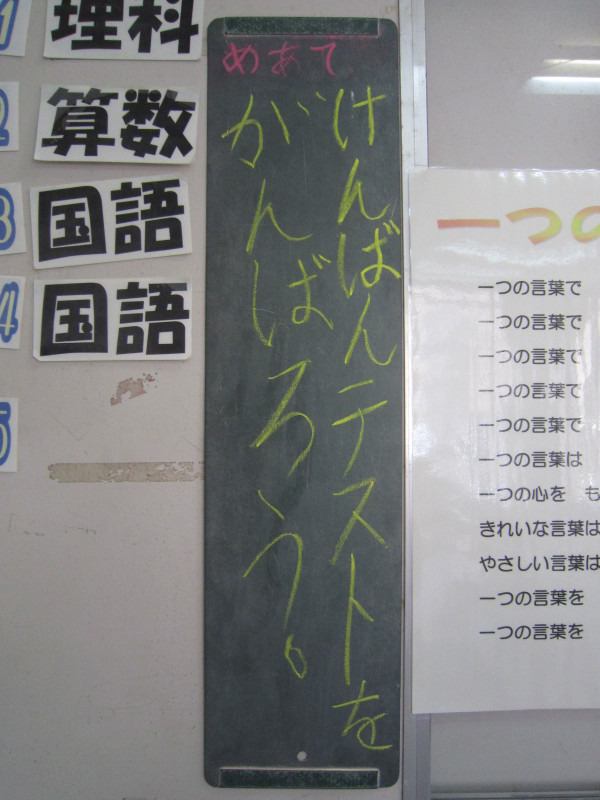 1 理科
2 算数
3 国語
4 国語
5
めあて
けんばんテストを
がんばろう。
一つの
一つの言葉で
一つの言葉で
一つの言葉で
一つの言葉で
一つの言葉で
一つの言葉は
一つの心を も
きれいな言葉は
やさしい言葉は
一つの言葉を
一つの言葉を